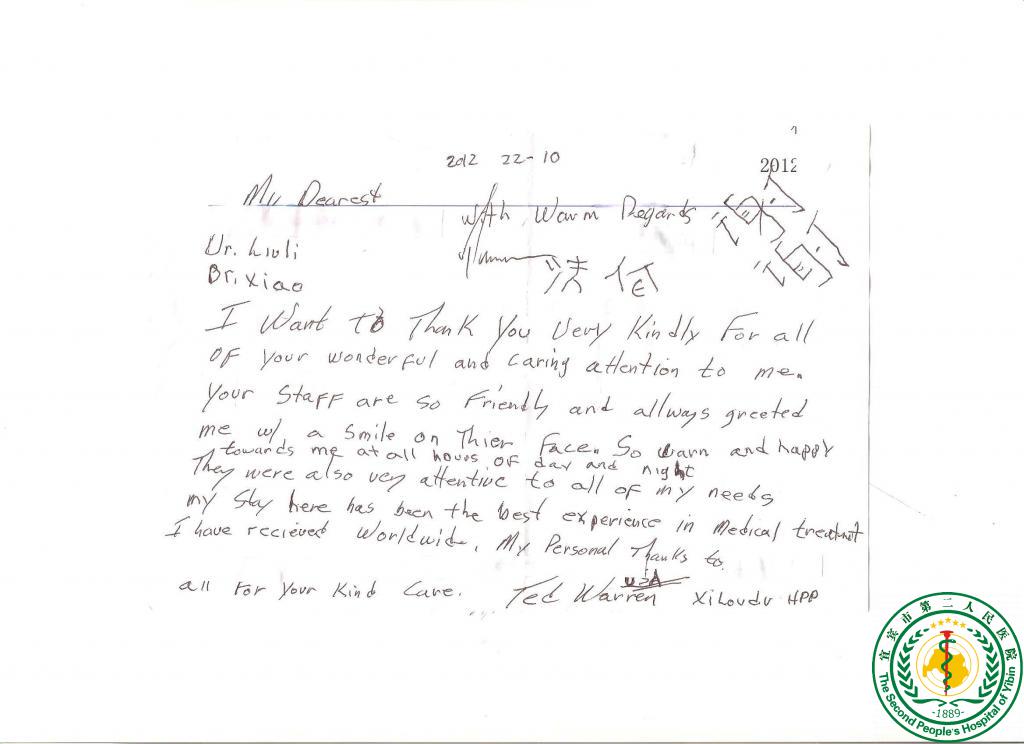 2012 22-10
2012
My Dearest
With Warm Regards
Dr. Liuli
Dr. Xiao
I Want to Thank You Very Kindly For all
OF your wonderful and caring attention to me.
Your Staff are so Friendly and allways greeted
me w/ a Smile on Thier Face. So warn and happy
towards me at all hours OF day and night
They were also very attentive to all of my needs
my Stay here has been the best experience in Medical treatment
I have recieved Worldwide. My Personal Thanks to
all For Your Kind Care. Ted Warren USA XiLoudu HPP
宜宾市第二人民医院
The Second People's Hospital of Yibin
-1889-